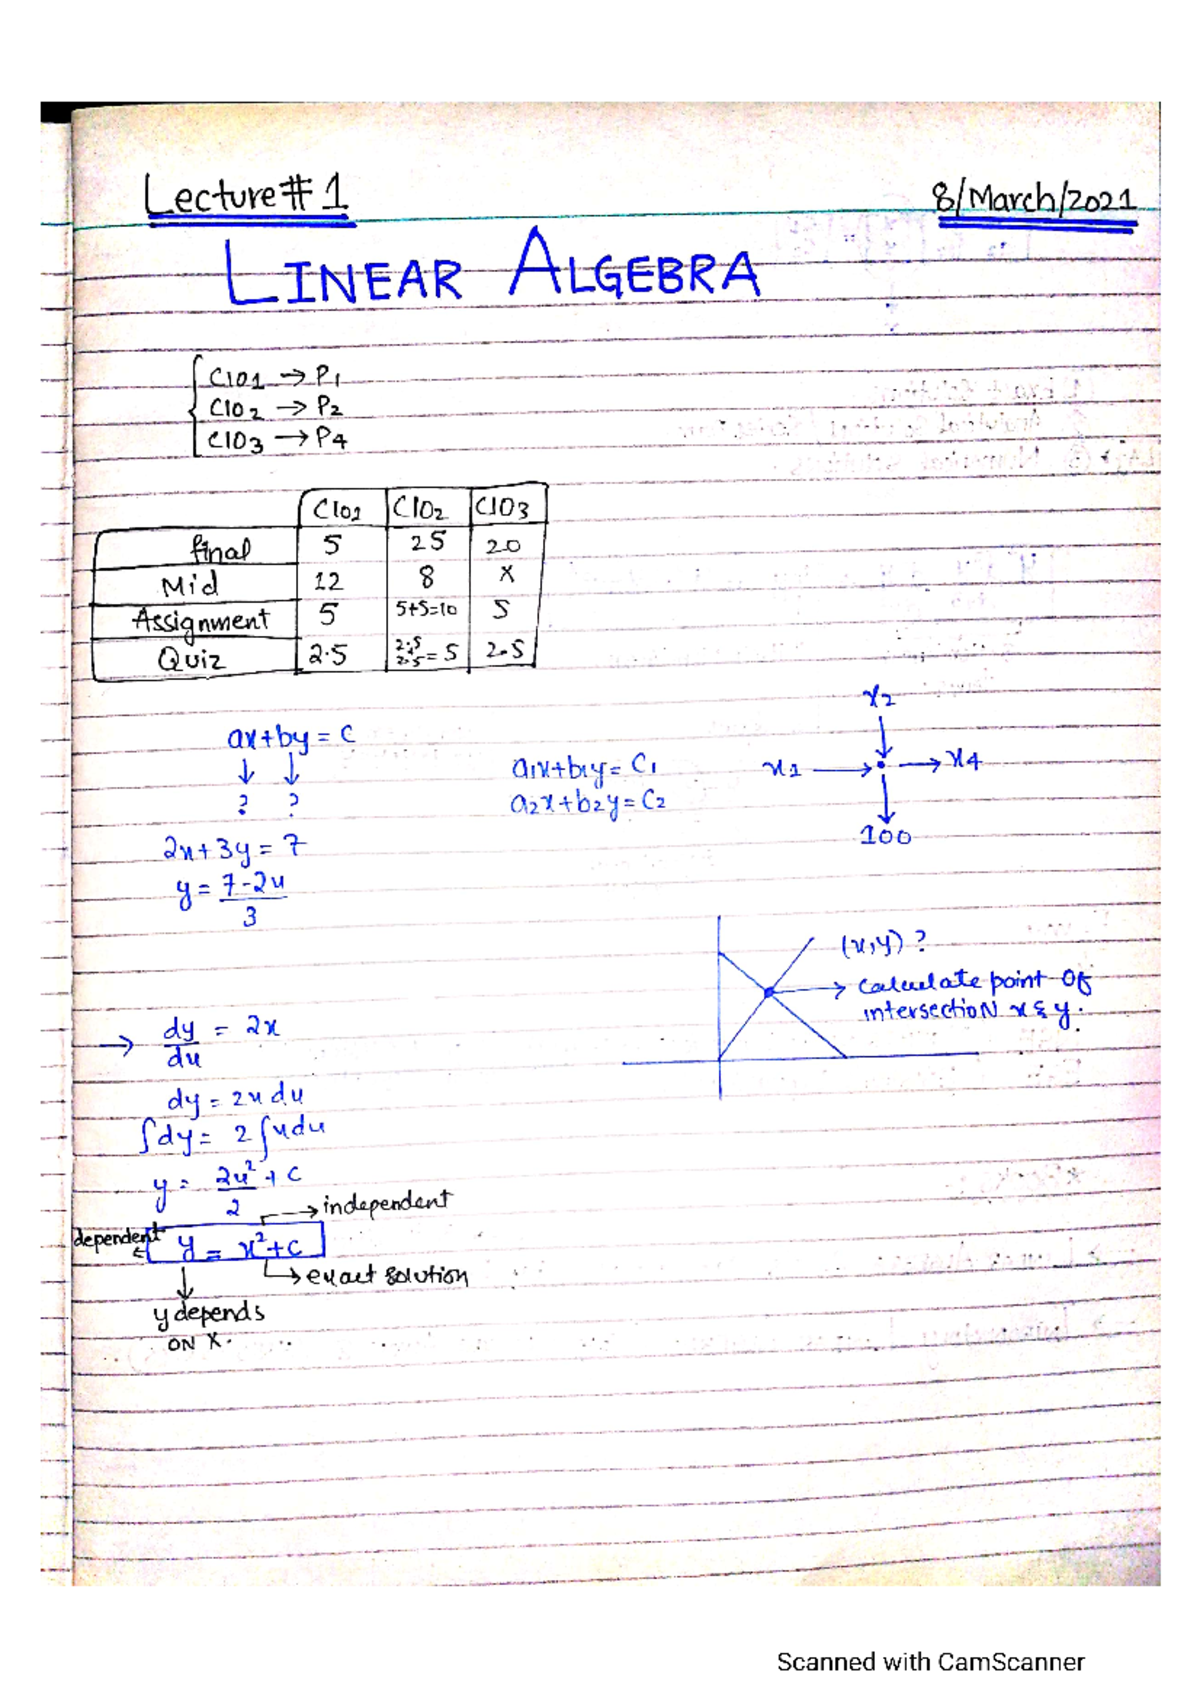 Lecture# 1
8/March/2021
LINEAR ALGEBRA
Clo1 → P1
Clo2 → P2
Clo3 → P4
Clo1 Clo2 Clo3
final 5 25 20
Mid 12 8 x
Assignment 5 5+5=10 5
Quiz 2.5 2.5 2.5 = 5 2.5
x2
ax+by = c
↓ ↓
? ?
a1x+b1y = C1
a2x+b2y = C2
x1 → → x4
100
2x+3y = 7
y = 7-2x
3
(x,y) ?
→ calculate point of
intersection x & y.
→ dy/dx = 2x
dy = 2x dx
∫dy = 2∫xdx
y = 2x²/2 + c
→ independent
dependent y = x²+c
→ exact solution
y depends
ON X.
Scanned with CamScanner